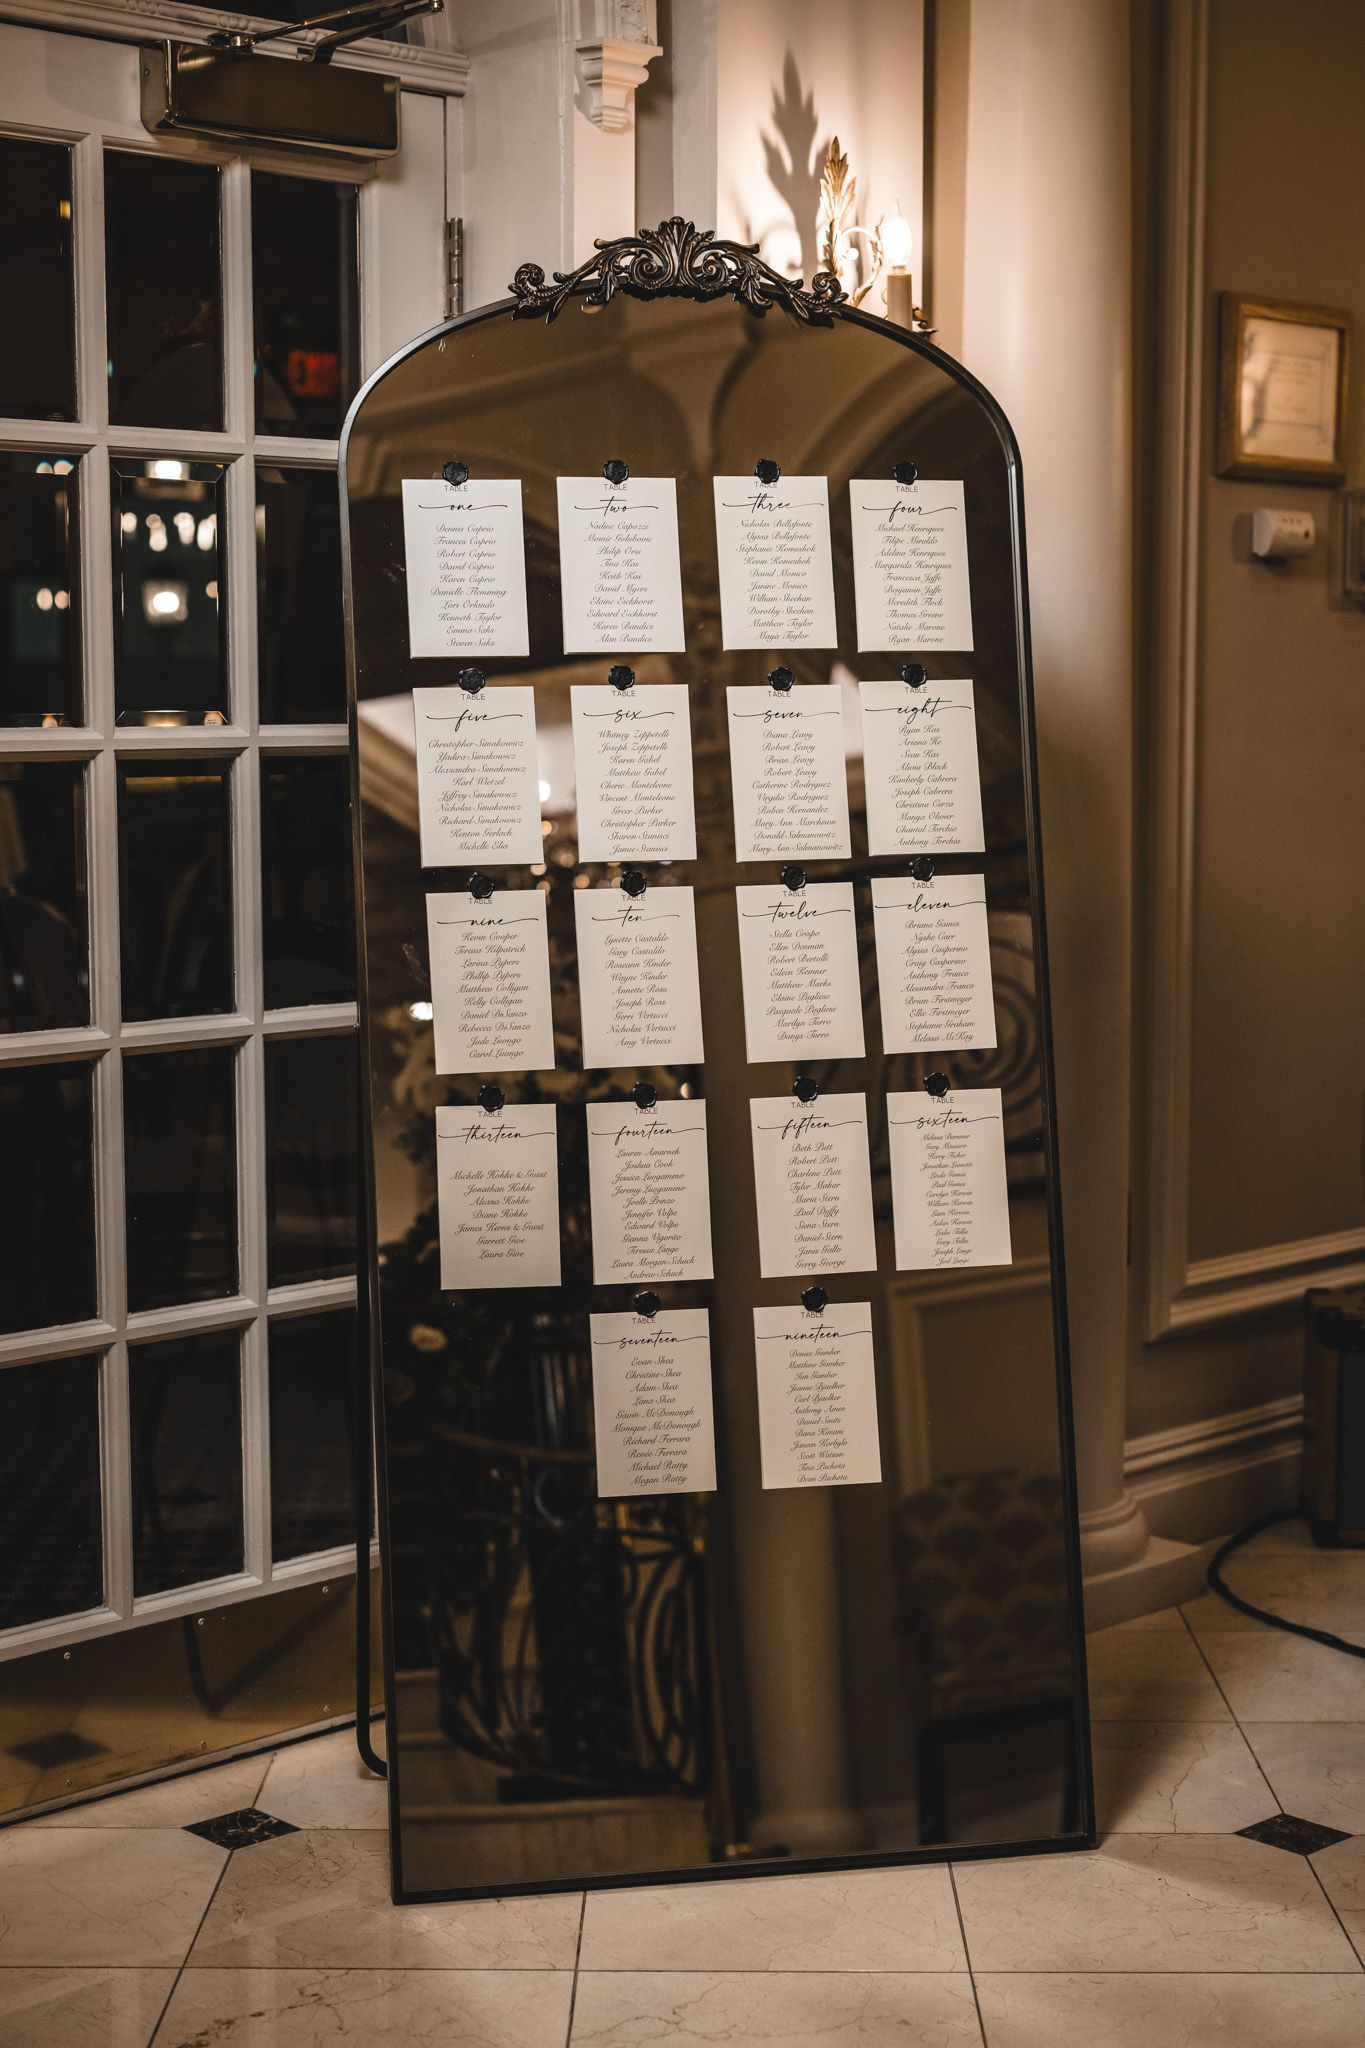 TABLE
one
Dennis Caprio
Frances Caprio
Robert Caprio
David Caprio
Karen Caprio
Danielle Flemming
Lori Orlando
Kenneth Taylor
Emma Saks
Steven Saks
TABLE
two
Nadine Capozzi
Momir Golubovic
Philip Orsi
Tina Kas
Keith Kas
David Myers
Elaine Eickhorst
Edward Eickhorst
Karen Bandics
Alan Bandics
TABLE
three
Nicholas Bellafonte
Alyssa Bellafonte
Stephanie Komeshok
Kevin Komeshok
David Monico
Janine Monico
William Sheehan
Dorothy Sheehan
Matthew Taylor
Maya Taylor
TABLE
four
Michael Henriques
Filipe Miraldo
Adelino Henriques
Margarida Henriques
Francesca Jaffe
Benjamin Jaffe
Meredith Flock
Thomas Greene
Natalie Marone
Ryan Marone
TABLE
five
Christopher Simakowicz
Yadira Simakowicz
Alexsandra Simakowicz
Karl Wietzel
Jeffrey Simakowicz
Nicholas Simakowicz
Richard Simakowicz
Kenton Gerlach
Michelle Elia
TABLE
six
Whitney Zeppetelli
Joseph Zeppetelli
Karen Gabel
Matthew Gabel
Cherie Monteleone
Vincent Monteleone
Greer Parker
Christopher Parker
Sharon Stanisci
Jamie Stanisci
TABLE
seven
Diana Leavy
Robert Leavy
Brian Leavy
Robert Leavy
Catherine Rodriguez
Virgilio Rodriguez
Ruben Hernandez
Mary Ann Murchison
Donald Salmanowitz
Mary Ann Salmanowitz
TABLE
eight
Ryan Kas
Ariana He
Sean Kas
Alivia Black
Kimberly Cabrera
Joseph Cabrera
Christina Cerza
Manya Olivier
Chantal Torchia
Anthony Torchia
TABLE
nine
Kevin Cooper
Teresa Kilpatrick
Larina Pypers
Phillip Pypers
Matthew Colligan
Kelly Colligan
Daniel DiSanzo
Rebecca DiSanzo
Jude Luongo
Carol Luongo
TABLE
ten
Lynette Castaldo
Gary Castaldo
Roseann Kinder
Wayne Kinder
Annette Ross
Joseph Ross
Gerri Vertucci
Nicholas Vertucci
Amy Vertucci
TABLE
twelve
Stella Crispo
Ellen Denman
Robert Bertolli
Eileen Hemner
Matthew Marks
Elaine Pugliese
Pasquale Pugliese
Marilyn Turro
Danys Turro
TABLE
eleven
Briana Gaines
Nyshe Carr
Alyssa Casperino
Craig Casperino
Anthony Franco
Alessandra Franco
Brian Firstmeyer
Ellie Firstmeyer
Stephanie Graham
Melissa McKay
TABLE
thirteen
Michelle Hohke & Guest
Jonathan Hohke
Alexsa Hohke
Diane Hohke
James Kerns & Guest
Garrett Gioe
Laura Gioe
TABLE
fourteen
Lauren Amarnek
Joshua Cook
Jessica Luogameno
Jeremy Luogameno
Joelle Prinzo
Jennifer Volpe
Edward Volpe
Gianna Vigorito
Teressa Lange
Laura Morgan-Schuck
Andrew Schuck
TABLE
fifteen
Beth Putt
Robert Putt
Charlene Putt
Tyler Makar
Maria Stern
Paul Duffy
Siena Stern
Daniel Stern
Janis Gallo
Gerry George
TABLE
sixteen
Melissa Bammer
Gary Massaro
Kerry Fisher
Jonathan Leonetti
Linda Gomes
Paul Gomes
Carolyn Kerwin
William Kerwin
Liam Kerwin
Aidan Kerwin
Leslie Tallia
Gary Tallia
Joseph Longo
Joel Longo
TABLE
seventeen
Evan Shea
Christine Shea
Adam Shea
Lana Shea
Gavin McDonough
Monique McDonough
Richard Ferrara
Renée Ferrara
Michael Ratty
Megan Ratty
TABLE
nineteen
Denise Gamher
Matthew Gamher
Ian Gamber
Jeanne Bjaelker
Carl Bjaelker
Anthony Amen
Daniel Smits
Dana Kimani
Janeen Korbylo
Scott Watson
Tina Pachota
Dean Pachota